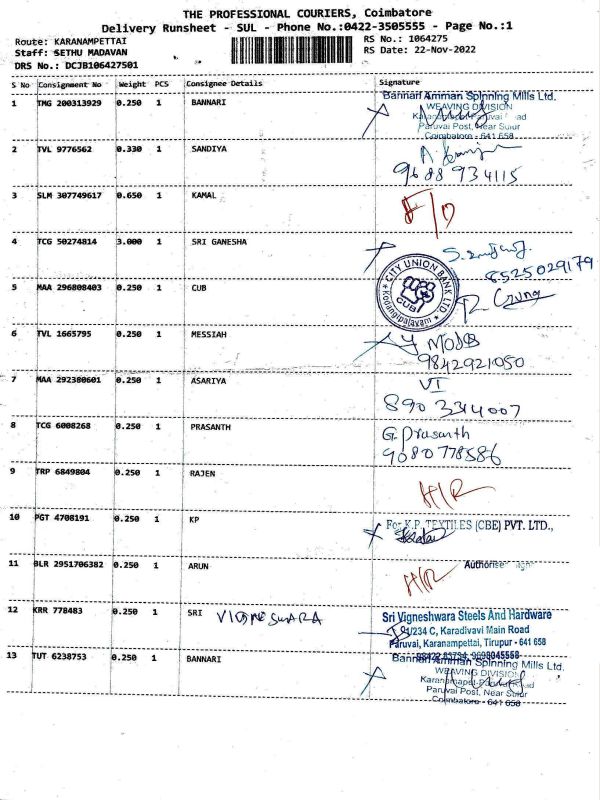 THE PROFESSIONAL COURIERS, Coimbatore
Delivery Runsheet - SUL - Phone No.:0422-3505555 - Page No.:1
Route: KARANAMPETTAI
RS No.: 1064275
Staff: SETHU MADAVAN
RS Date: 22-Nov-2022
DRS No.: DCJB106427501
S No Consignment No Weight PCS Consignee Details Signature
1 TMG 200313929 0.250 1 BANNARI
Bannari Amman Spinning Mills Ltd.
WEAVING DIVISION
Paruvai Post, Near Sulur
Coimbatore - 641 658
2 TVL 9776562 0.330 1 SANDIYA
9688934115
3 SLM 307749617 0.650 1 KAMAL
F/D
4 TCG 50274814 3.000 1 SRI GANESHA
8525029179
5 MAA 296808403 0.250 1 CUB
CITY UNION BANK LTD
CUB
Kodangipalayam
6 TVL 1665795 0.250 1 MESSIAH
9842921050
7 MAA 292380601 0.250 1 ASARIYA
VI
8903314007
8 TCG 6008268 0.250 1 PRASANTH
G. Prasanth
9080778586
9 TRP 6849804 0.250 1 RAJEN
H/R
10 PGT 4708191 0.250 1 KP
For K.P. TEXTILES (CBE) PVT. LTD.,
11 BLR 2951706382 0.250 1 ARUN
H/R
12 KRR 778483 0.250 1 SRI VIGNESWARA
Sri Vigneshwara Steels And Hardware
1/234 C, Karadivavi Main Road
Paruvai, Karanampettai, Tirupur - 641 658
13 TUT 6238753 0.250 1 BANNARI
Bannari Amman Spinning Mills Ltd.
WEAVING DIVISION
Paruvai Post, Near Sulur
Coimbatore - 641 658